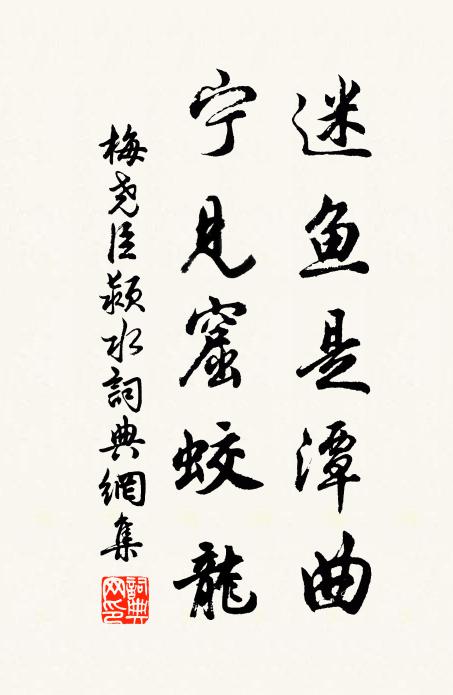 迷鱼是潭曲
宁见窟蛟龍
梅尧臣颍水詞典網集
詞典网印